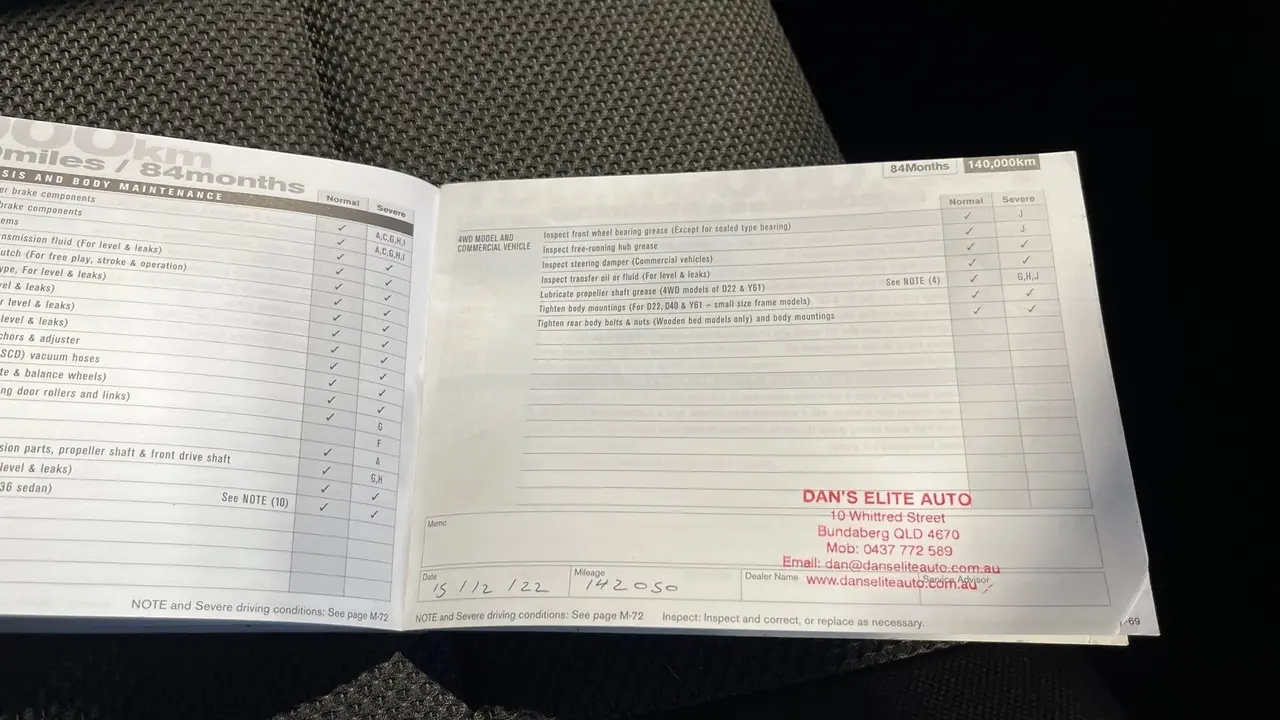 000km
miles / 84months
SIS AND BODY MAINTENANCE
Normal
Severe
er brake components
✓ A,C,G,H,I
brake components
✓ A,C,G,H,I
ems
✓ ✓
nsmission fluid (For level & leaks)
✓ ✓
utch (For free play, stroke & operation)
✓ ✓
ype, For level & leaks)
✓ ✓
vel & leaks)
✓ ✓
r level & leaks)
✓ ✓
level & leaks)
✓ ✓
chors & adjuster
✓ ✓
SCD) vacuum hoses
✓ ✓
te & balance wheels)
✓ G
ng door rollers and links)
F
A
sion parts, propeller shaft & front drive shaft
✓ G,H
level & leaks)
✓ ✓
36 sedan)
See NOTE (10)
✓ ✓
NOTE and Severe driving conditions: See page M-72
84Months 140,000km
Normal Severe
4WD MODEL AND
COMMERCIAL VEHICLE
Inspect front wheel bearing grease (Except for sealed type bearing) ✓ J
Inspect free-running hub grease ✓ J
Inspect steering damper (Commercial vehicles) ✓ ✓
Inspect transfer oil or fluid (For level & leaks) ✓ ✓
Lubricate propeller shaft grease (4WD models of D22 & Y61) See NOTE (4) ✓ G,H,J
Tighten body mountings (For D22, D40 & Y61 – small size frame models) ✓ ✓
Tighten rear body bolts & nuts (Wooden bed models only) and body mountings ✓ ✓
DAN'S ELITE AUTO
10 Whittred Street
Bundaberg QLD 4670
Mob: 0437 772 589
Email: dan@danseliteauto.com.au
www.danseliteauto.com.au
Memo
Date
15 / 12 / 22
Mileage
142050
Dealer Name
Service Advisor
NOTE and Severe driving conditions: See page M-72 Inspect: Inspect and correct, or replace as necessary.
-69